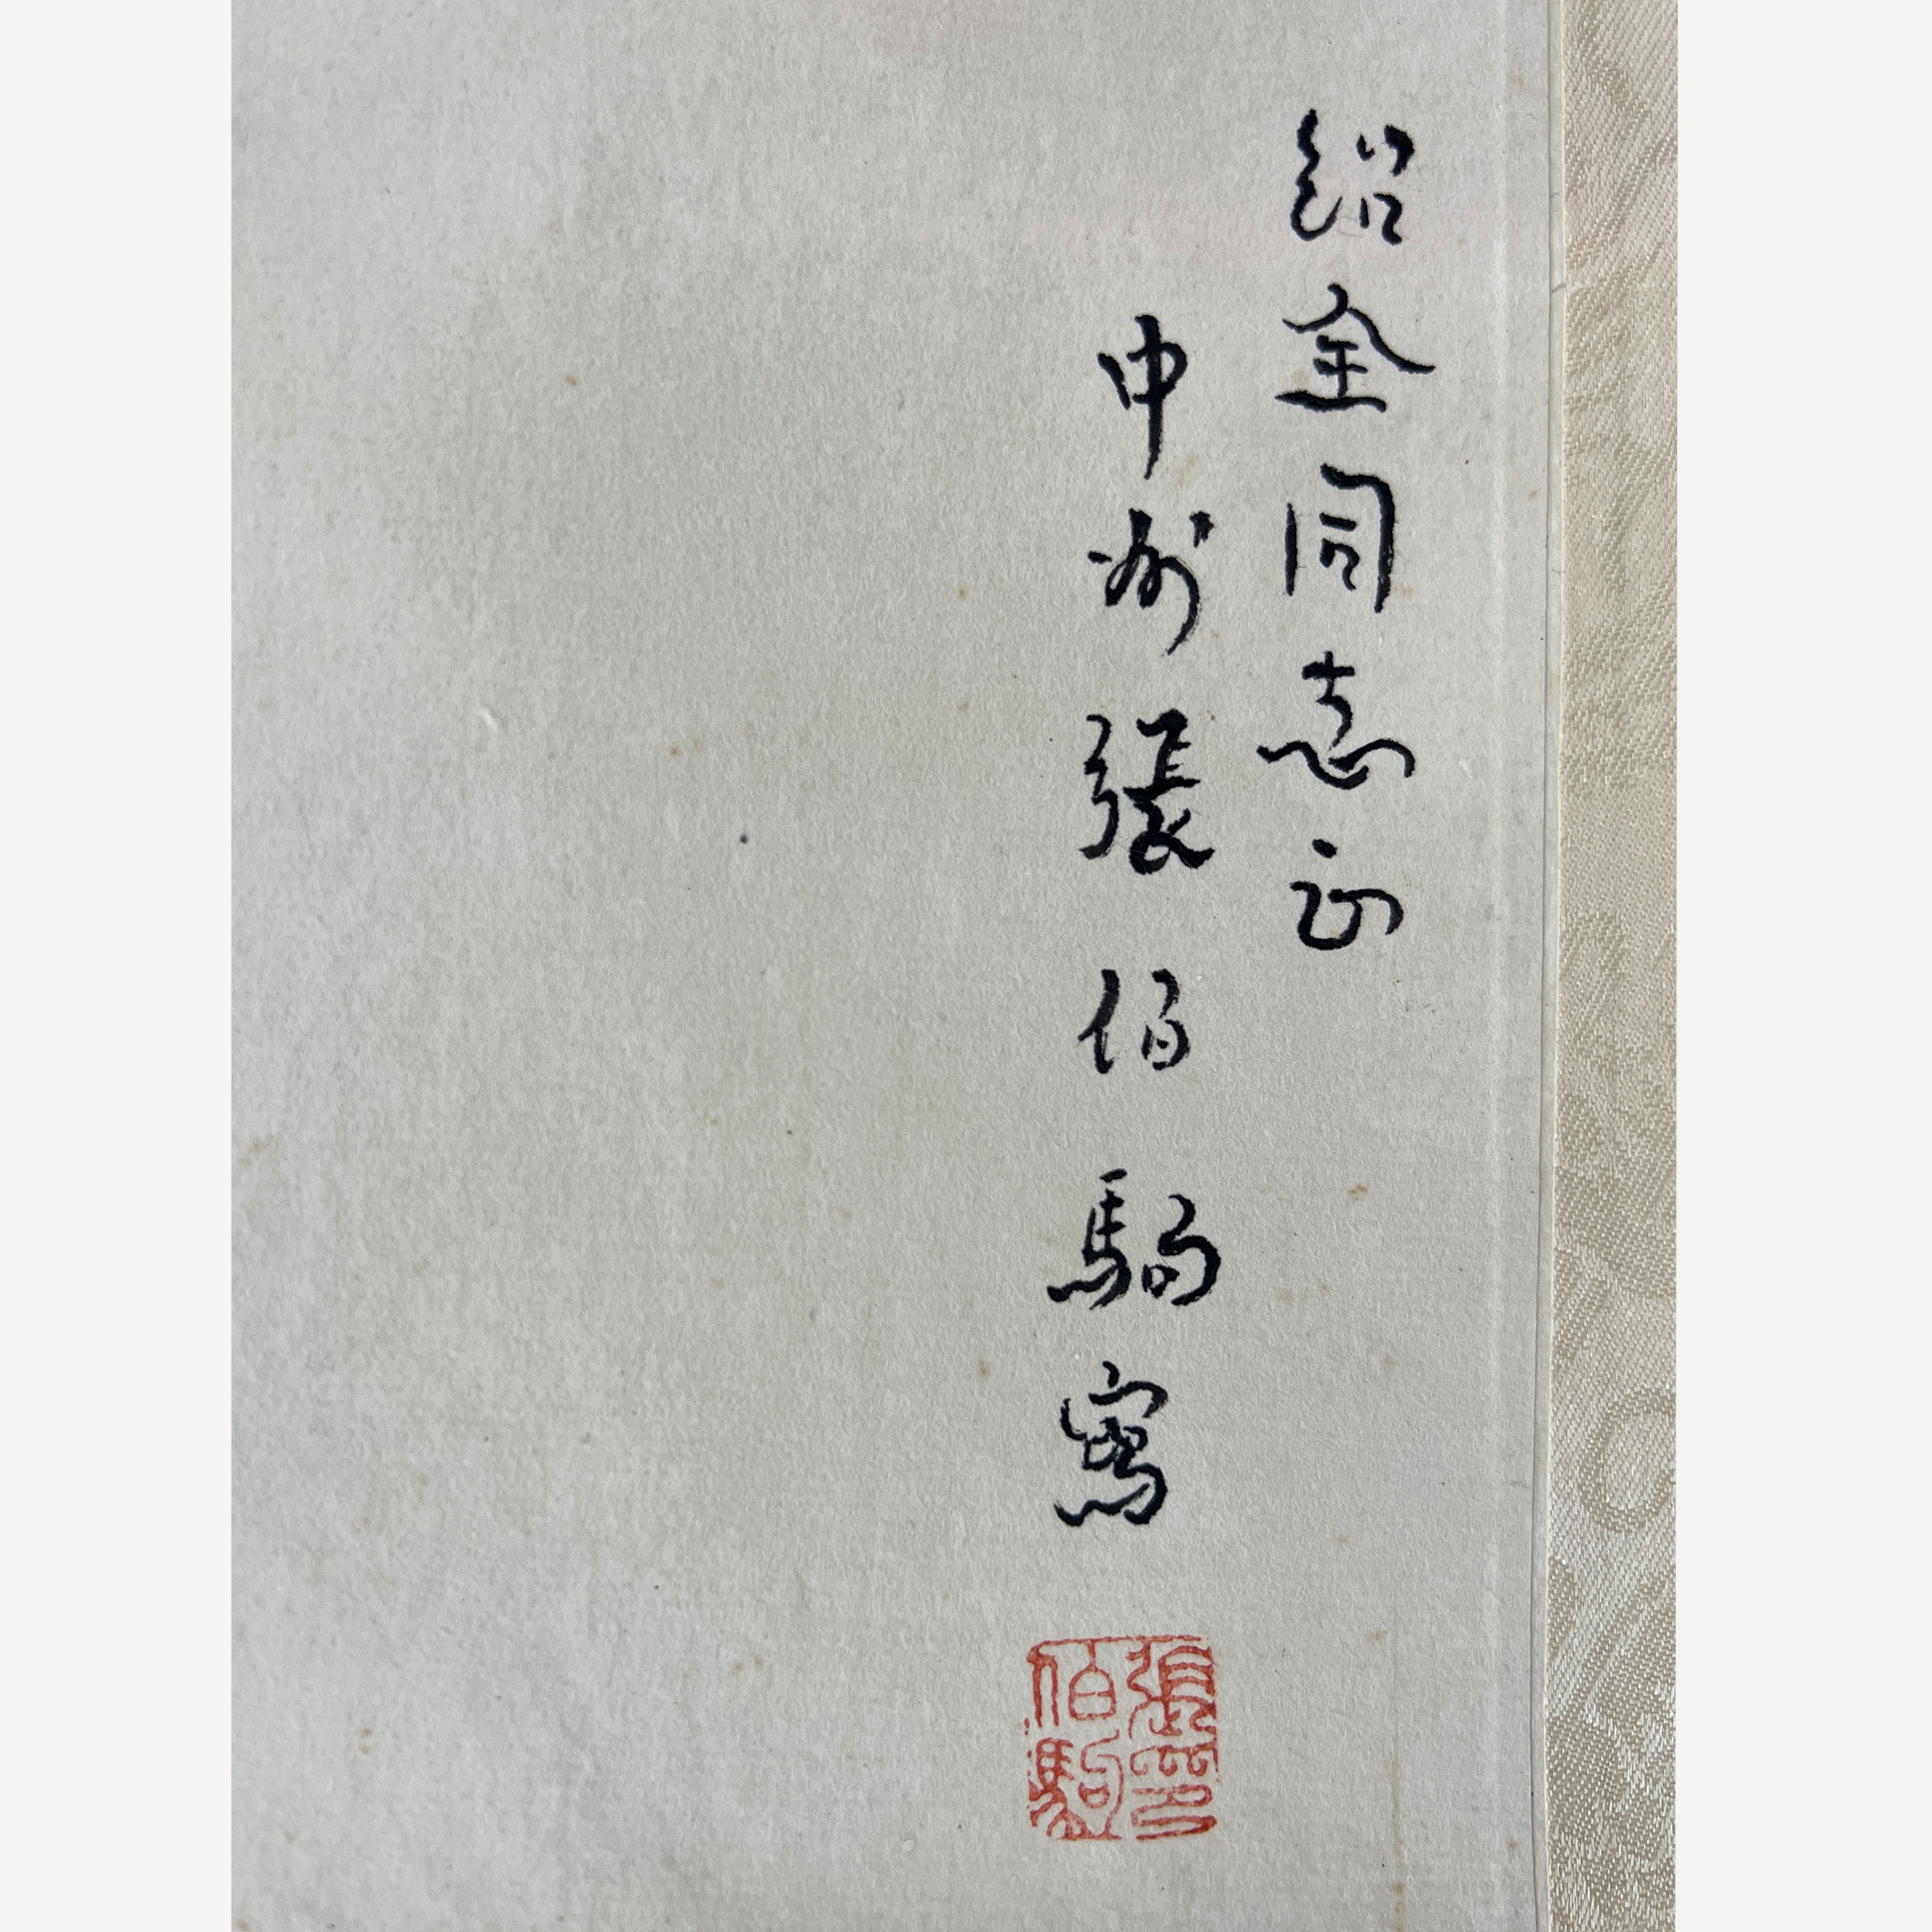 紹全同志正
中州張伯駒寫
張印伯駒